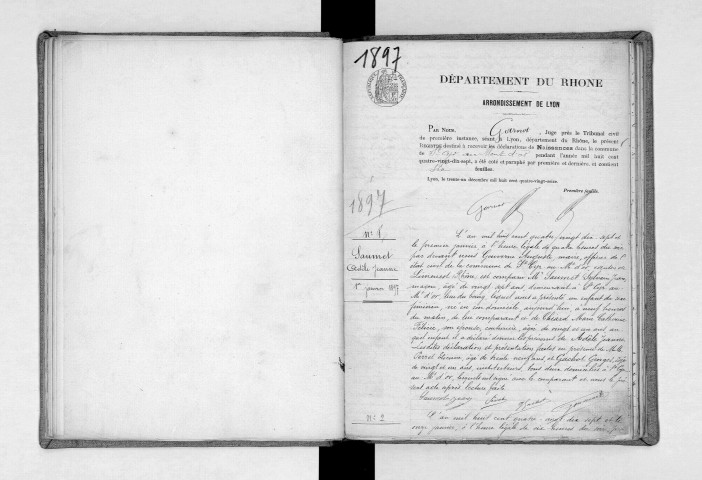 1897
DÉPARTEMENT DU RHONE
ARRONDISSEMENT DE LYON
PAR NOUS, Garnot, Juge près le Tribunal civil
de première instance, séant à Lyon, département du Rhône, le présent
REGISTRE destiné à recevoir les déclarations de Naissances dans la commune
de St Cyr au Mont d'or pendant l'année mil huit cent
quatre-vingt-dix-sept, a été coté et paraphé par première et dernière, et contient
feuilles.
Lyon, le trente-un décembre mil huit cent quatre-vingt-seize.
Première feuille.
1897
N° 1
Saumet
Adèle Jeanne
1er janvier 1897
L'an mil huit cent quatre vingt dix sept et
le premier janvier à l'heure légale de quatre heures du soir
par devant nous Auguste maire, officier de l'
état civil de la commune de St Cyr au Mt d'or, canton de
Limonest Rhône, est comparu Mr Saumet
maçon, âgé de vingt sept ans, demeurant à St Cyr au
Mt d'or, lieu du bourg, lequel nous a présenté un enfant du sexe
féminin, née en son domicile, aujourd'hui, à neuf heures
du matin, de lui comparant et de Marie Catherine
son épouse, couturière, âgée de vingt six ans, au
quel enfant il a déclaré donner les prénoms de Adèle Jeanne
Lesdites déclaration et présentation faites en présence de MM.
Perret âgé de trente neuf ans, et Georges, âgé
de vingt et un ans, instituteurs, tous deux domiciliés à St Cyr
au Mt d'or, lesquels ont signé avec le comparant et nous le pré
sent acte après lecture faite
N° 2
L'an mil huit cent quatre vingt dix sept et le
onze janvier, à l'heure légale de six heures du soir, par